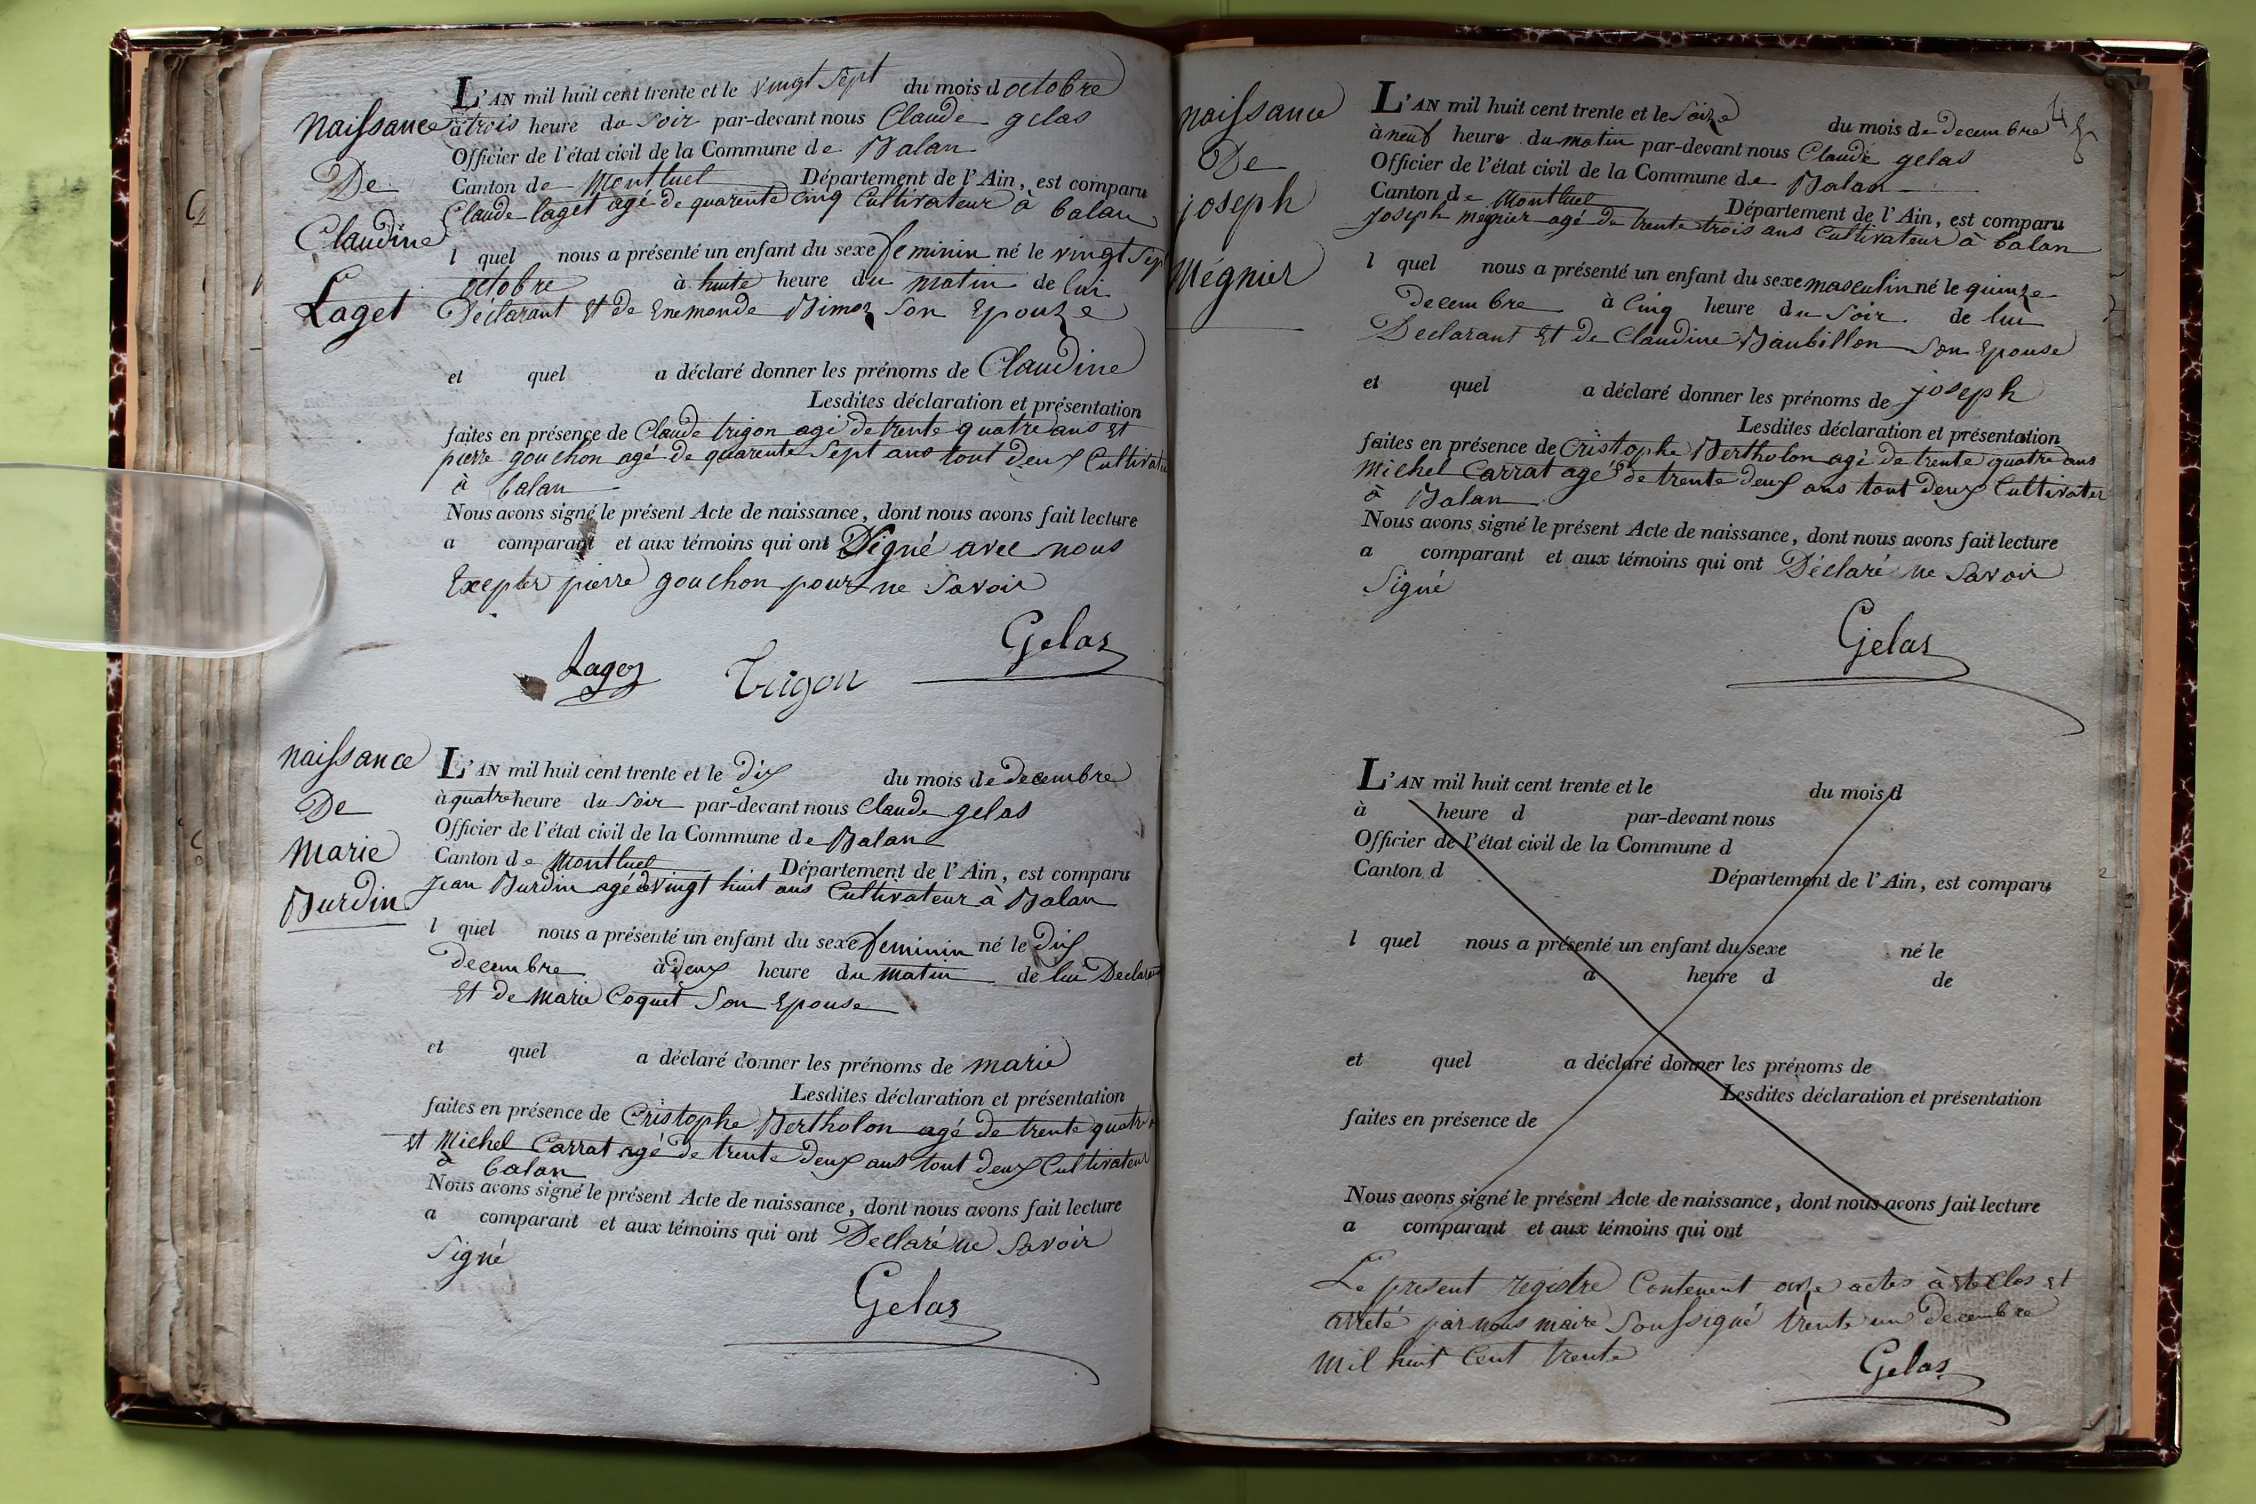 Naissance
De
Claudine
Laget
L'AN mil huit cent trente et le vingt sept du mois d octobre
à trois heure du Soir par-devant nous Claude gelas
Officier de l'état civil de la Commune de Balan
Canton de Montluel Département de l'Ain, est comparu
Claude laget agé de quarente Cinq Cultivateur à balan
l quel nous a présenté un enfant du sexe feminin né le vingt Sept
octobre à huite heure du matin de lui
Déclarant et de Enemonde Bimoz Son Epouze
et quel a déclaré donner les prénoms de Claudine
Lesdites déclaration et présentation
faites en présence de Claude trigon agé de trente quatre ans et
pierre gouchon agé de quarente Sept ans tout deux Cultivateur
à balan
Nous avons signé le présent Acte de naissance, dont nous avons fait lecture
a comparant et aux témoins qui ont Signé avec nous
Exepter pierre gouchon pour ne Savoir
Lagez Trigon Gelas
naissance
De
marie
Burdin
L'AN mil huit cent trente et le dix du mois de decembre
à quatre heure du Soir par-devant nous Claude gelas
Officier de l'état civil de la Commune de Balan
Canton de Montluel Département de l'Ain, est comparu
Jean Burdin agé de vingt huit ans Cultivateur à Balan
l quel nous a présenté un enfant du sexe feminin né le Dix
decembre à deux heure du matin de lui Declarant
Et de marie Coquet Son Epouse
et quel a déclaré donner les prénoms de marie
Lesdites déclaration et présentation
faites en présence de Cristophe Bertholon agé de trente quatre
et Michel Carrat agé de trente deux ans tout deux Cultivateur
à balan
Nous avons signé le présent Acte de naissance, dont nous avons fait lecture
a comparant et aux témoins qui ont Declaré ne Savoir
Signé
Gelas
naissance
De
joseph
Mégnier
L'AN mil huit cent trente et le Soize du mois de decembre
à neuf heure du matin par-devant nous Claude gelas
Officier de l'état civil de la Commune de Balan
Canton de Montluel Département de l'Ain, est comparu
Joseph megnier agé de trente trois ans Cultivateur à balan
l quel nous a présenté un enfant du sexe masculin né le quinze
decembre à Cinq heure du Soir de lui
Declarant Et de Claudine Baubillon Son Epouse
et quel a déclaré donner les prénoms de joseph
Lesdites déclaration et présentation
faites en présence de Cristophe Bertholon agé de trente quatre ans
Michel Carrat agé de trente deux ans tout deux Cultivateur
à Balan
Nous avons signé le présent Acte de naissance, dont nous avons fait lecture
a comparant et aux témoins qui ont Déclaré ne Savoir
Signé
Gelas
L'AN mil huit cent trente et le du mois d
à heure d par-devant nous
Officier de l'état civil de la Commune d
Canton d Département de l'Ain, est comparu
l quel nous a présenté un enfant du sexe né le
a heure d de
et quel a déclaré donner les prénoms de
Lesdites déclaration et présentation
faites en présence de
Nous avons signé le présent Acte de naissance, dont nous avons fait lecture
a comparant et aux témoins qui ont
Le present registre Contenent onze actes à été Clos et
arreté par nous maire Soussigné trente un decembre
mil huit Cent trente
Gelas